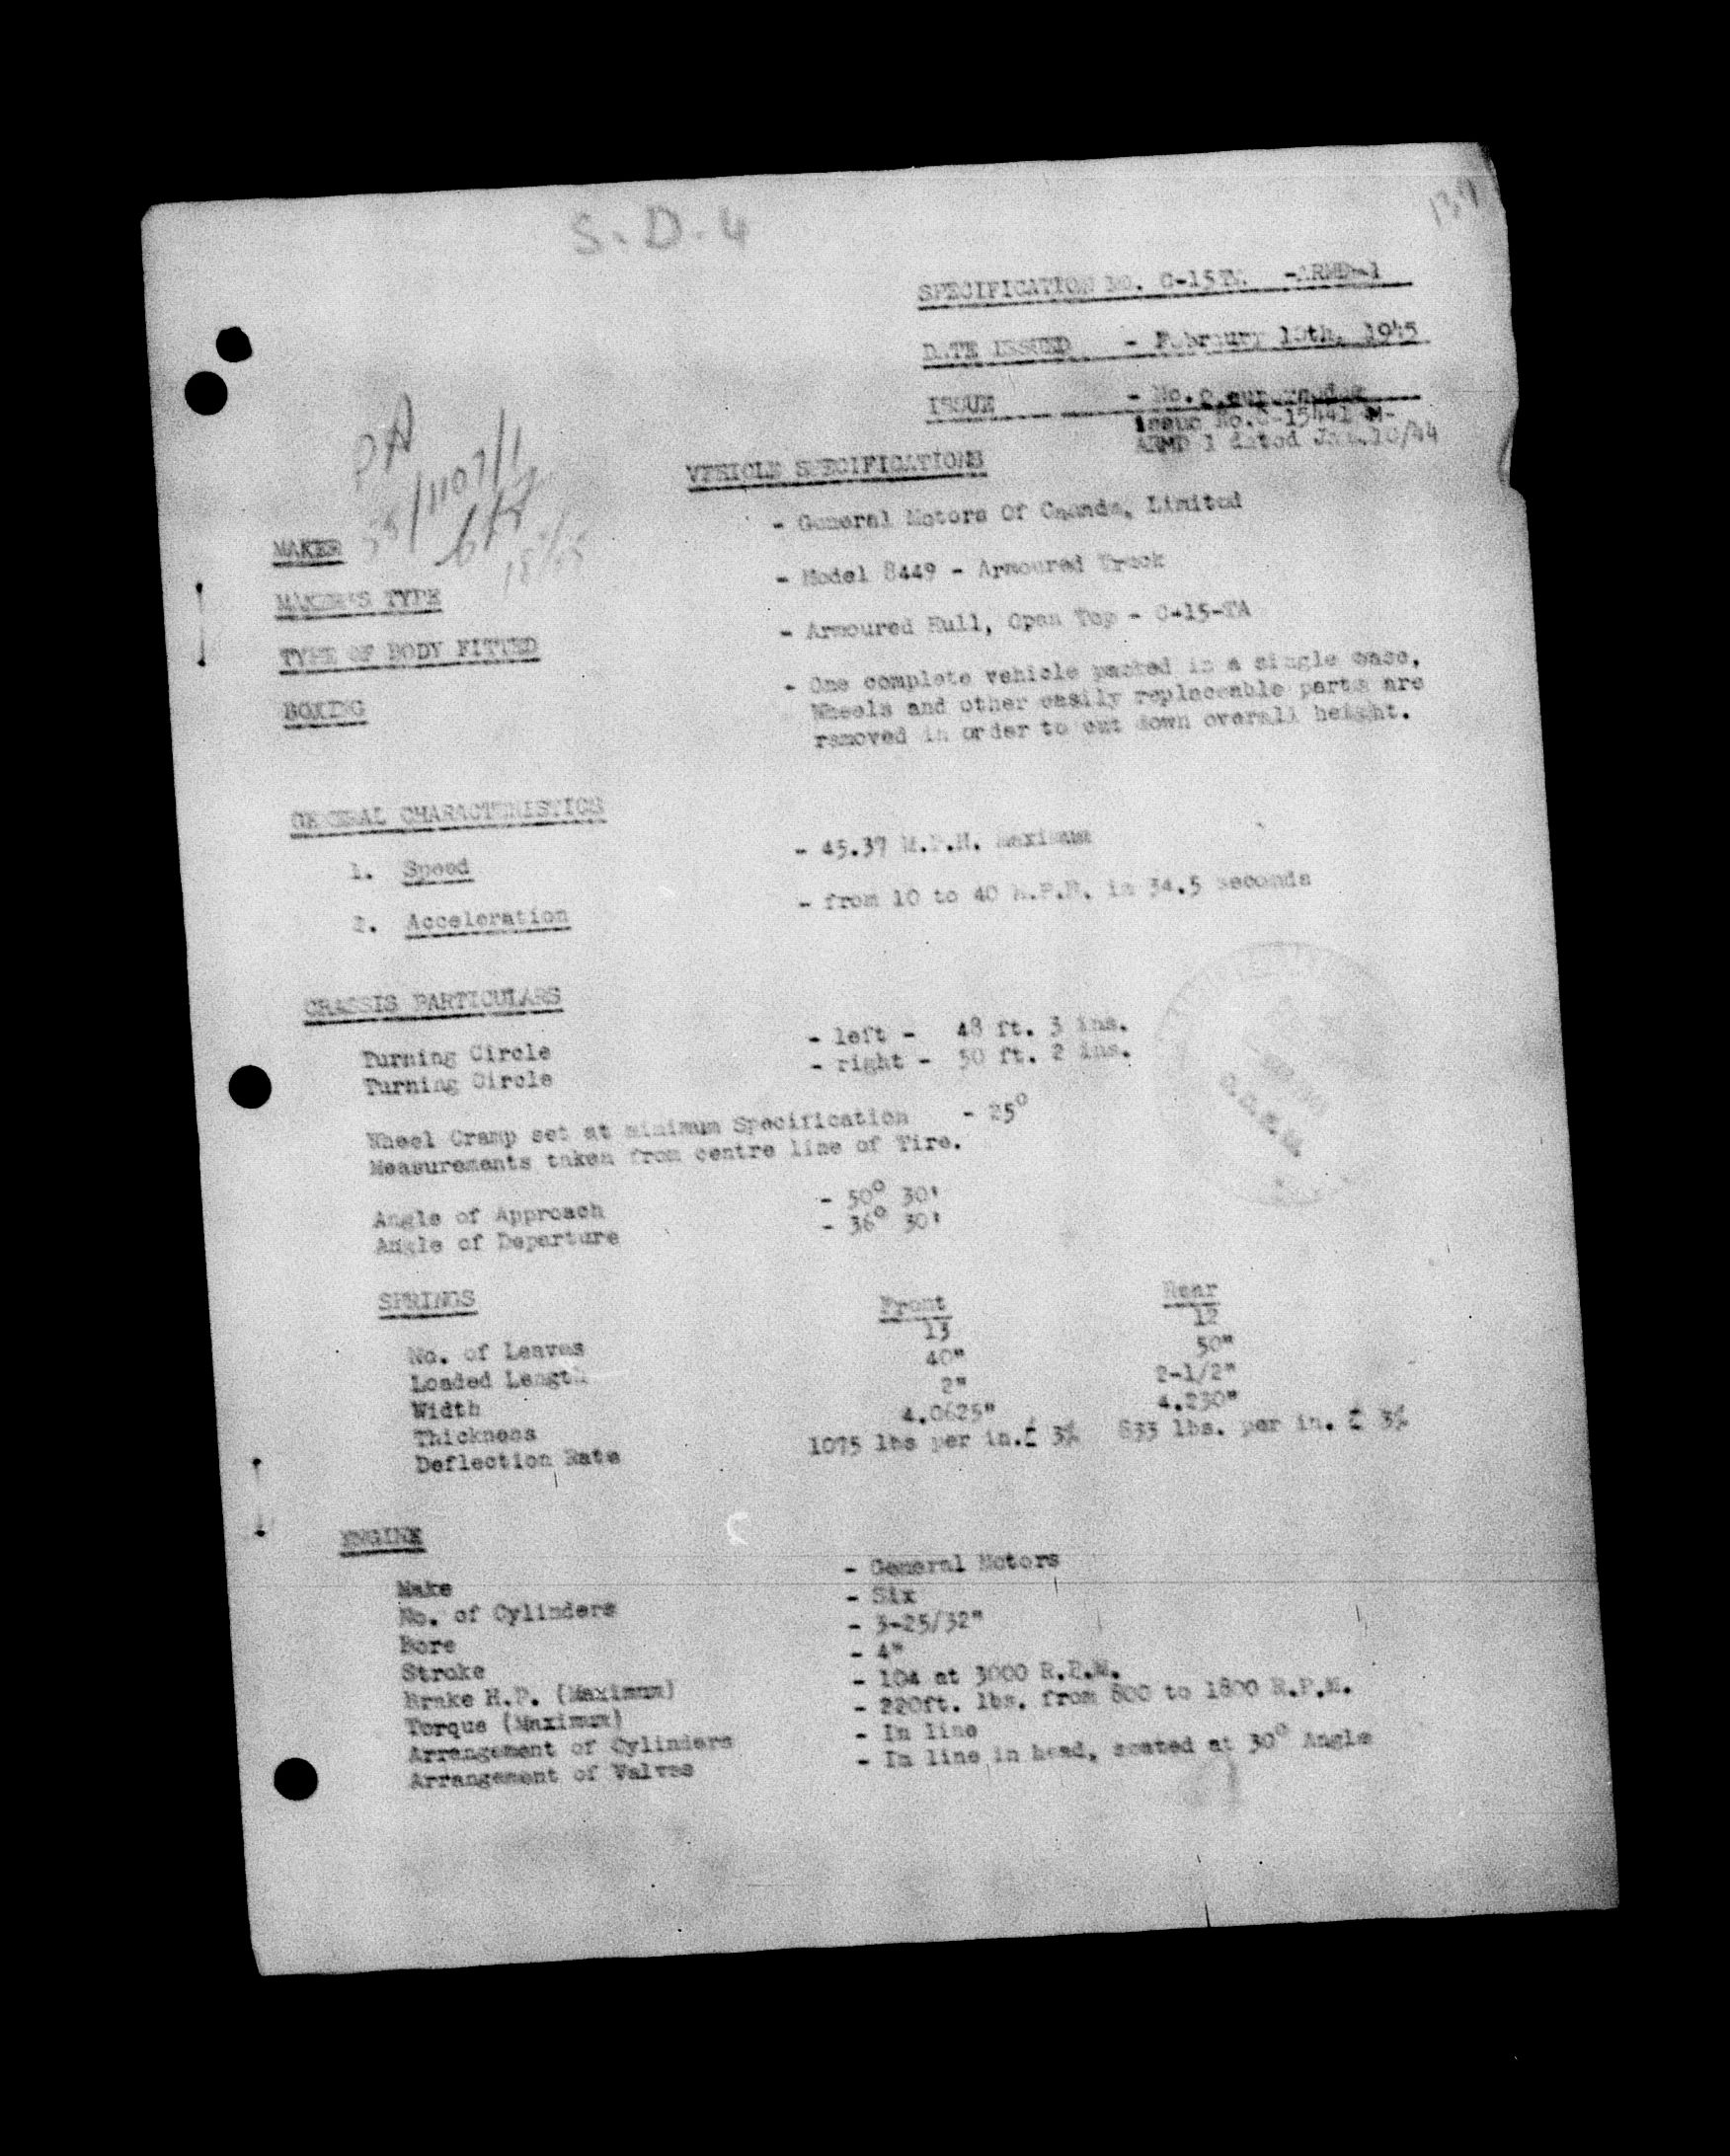 S.D.4
SPECIFICATION NO. C-15TA -ARMD-1
DATE ISSUED - February 10th, 1945
ISSUE - No. 2 supersedes
issue No.C-15441-M-
ARMD 1 dated Jan.10/44
PA
55/1107/1
VEHICLE SPECIFICATIONS
MAKER - General Motors Of Canada, Limited
MAKER'S TYPE - Model 8449 - Armoured Truck
TYPE OF BODY FITTED - Armoured Hull, Open Top - C-15-TA
BOXING - One complete vehicle packed in a single case,
Wheels and other easily replaceable parts are
removed in order to cut down overall height.
GENERAL CHARACTERISTICS
1. Speed - 45.37 M.P.H. maximum
2. Acceleration - from 10 to 40 M.P.H. in 34.5 seconds
CHASSIS PARTICULARS
Turning Circle - left - 48 ft. 3 ins.
Turning Circle - right - 50 ft. 2 ins.
Wheel Cramp set at minimum Specification - 25°
Measurements taken from centre line of Tire.
Angle of Approach - 50° 30'
Angle of Departure - 36° 30'
SPRINGS Front Rear
No. of Leaves 13 12
Loaded Length 40" 50"
Width 2" 2-1/2"
Thickness 4.0625" 4.230"
Deflection Rate 1075 lbs per in.± 3% 833 lbs. per in. ± 3%
ENGINE
Make - General Motors
No. of Cylinders - Six
Bore - 3-25/32"
Stroke - 4"
Brake H.P. (Maximum) - 104 at 3000 R.P.M.
Torque (Maximum) - 220ft. lbs. from 800 to 1800 R.P.M.
Arrangement of Cylinders - In line
Arrangement of Valves - In line in head, seated at 30° Angle